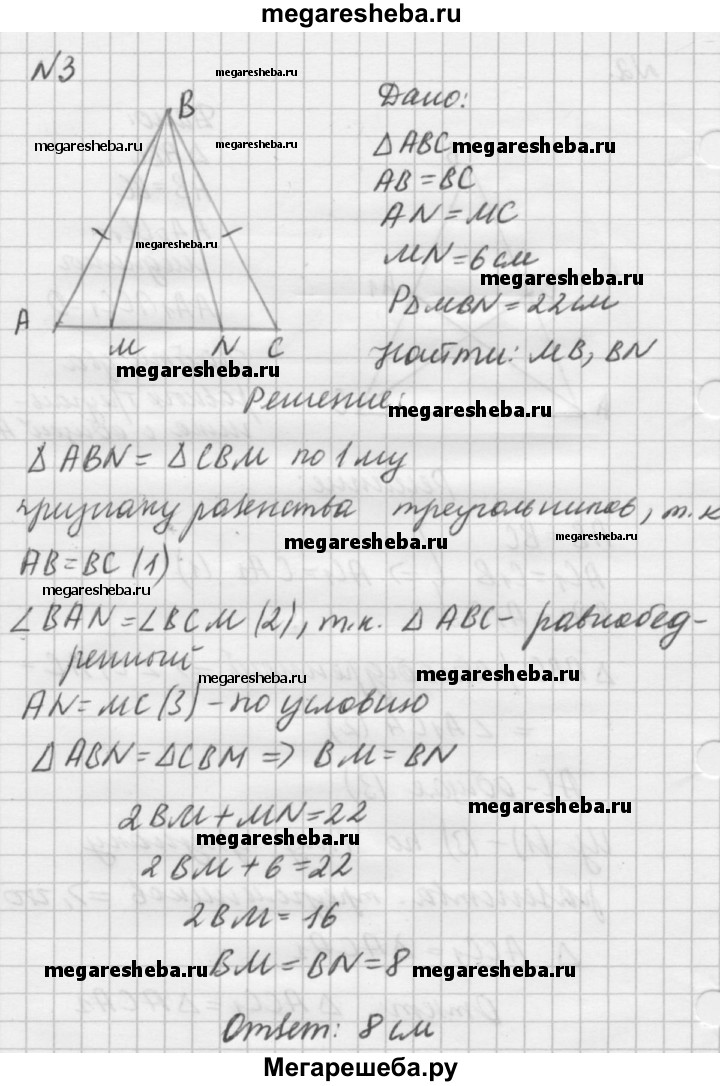 megaresheba.ru
N3
megaresheba.ru
B
Дано:
megaresheba.ru
megaresheba.ru
Δ ABC
megaresheba.ru
AB = BC
AN = MC
megaresheba.ru
MN = 6 см
megaresheba.ru
PΔMBN = 22 см
A
M
N
C
Найти: MB, BN
megaresheba.ru
Решение:
megaresheba.ru
Δ ABN = Δ CBM по 1 му
признаку равенства треугольников, т.к
megaresheba.ru
megaresheba.ru
AB = BC (1)
megaresheba.ru
∠BAN = ∠BCM (2), т.к. Δ ABC - равнобед-
ренный
megaresheba.ru
megaresheba.ru
AN = MC (3) - по условию
Δ ABN = Δ CBM => BM = BN
megaresheba.ru
2BM + MN = 22
megaresheba.ru
2BM + 6 = 22
2BM = 16
megaresheba.ru
BM = BN = 8
megaresheba.ru
Ответ: 8 см
Мегарешеба.ру